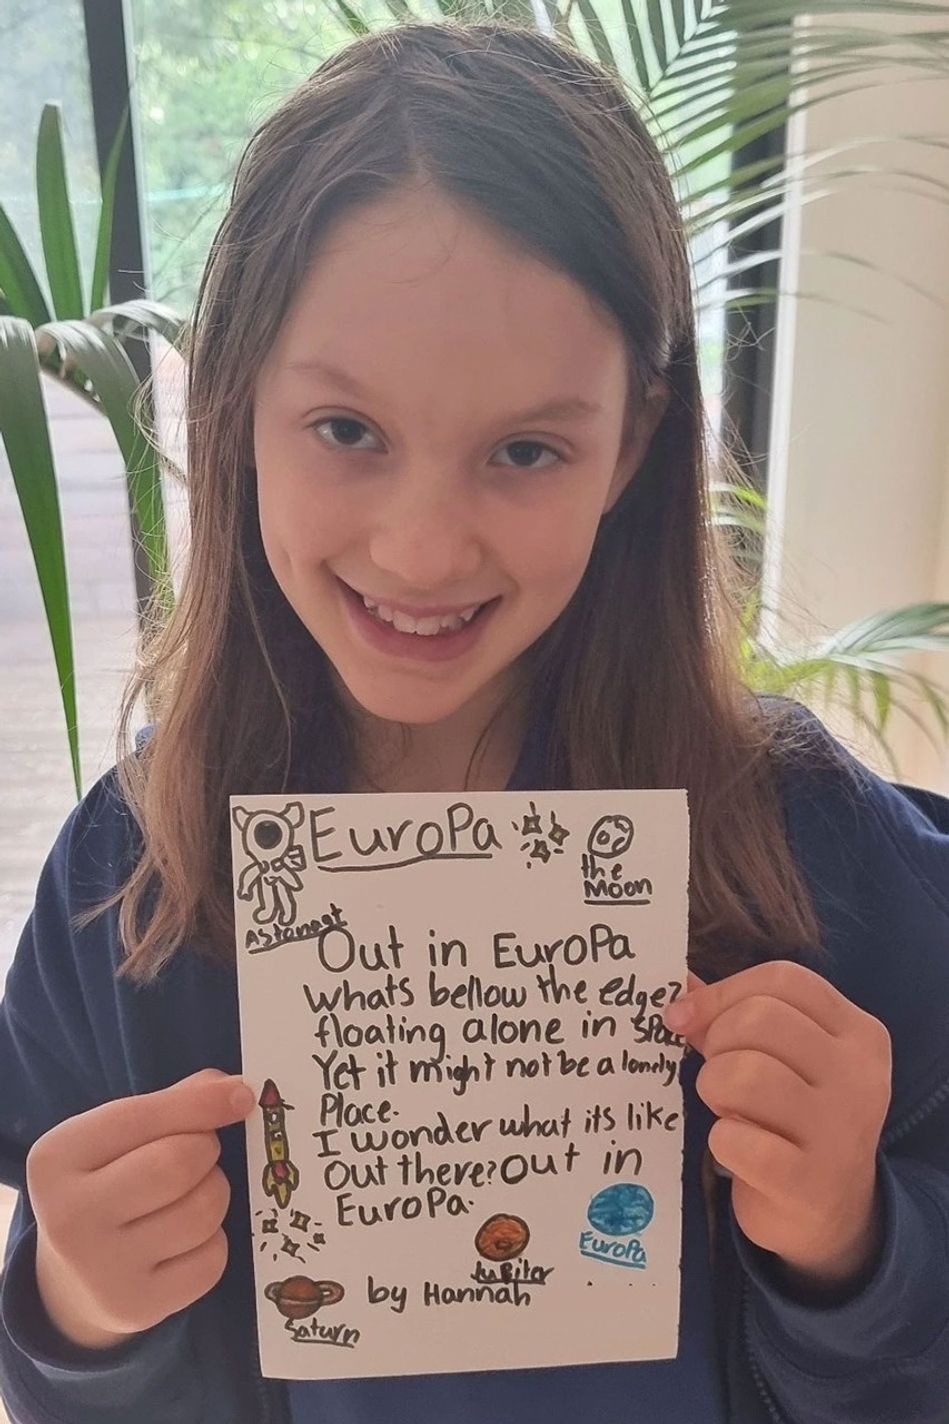 Europa
the
Moon
Astanaut
Out in Europa
Whats bellow the edge?
floating alone in space
Yet it might not be a lonely
Place.
I wonder what its like
Out there? Out in
Europa.
Europa
Jupiter
by Hannah
Saturn